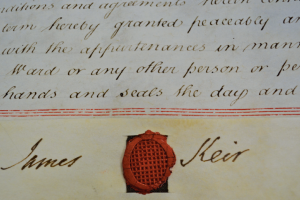 nditions and agreements herein con
term hereby granted peaceably a
with the appurtenances in mann
Ward or any other person or pe
hands and seals the day and
James Keir